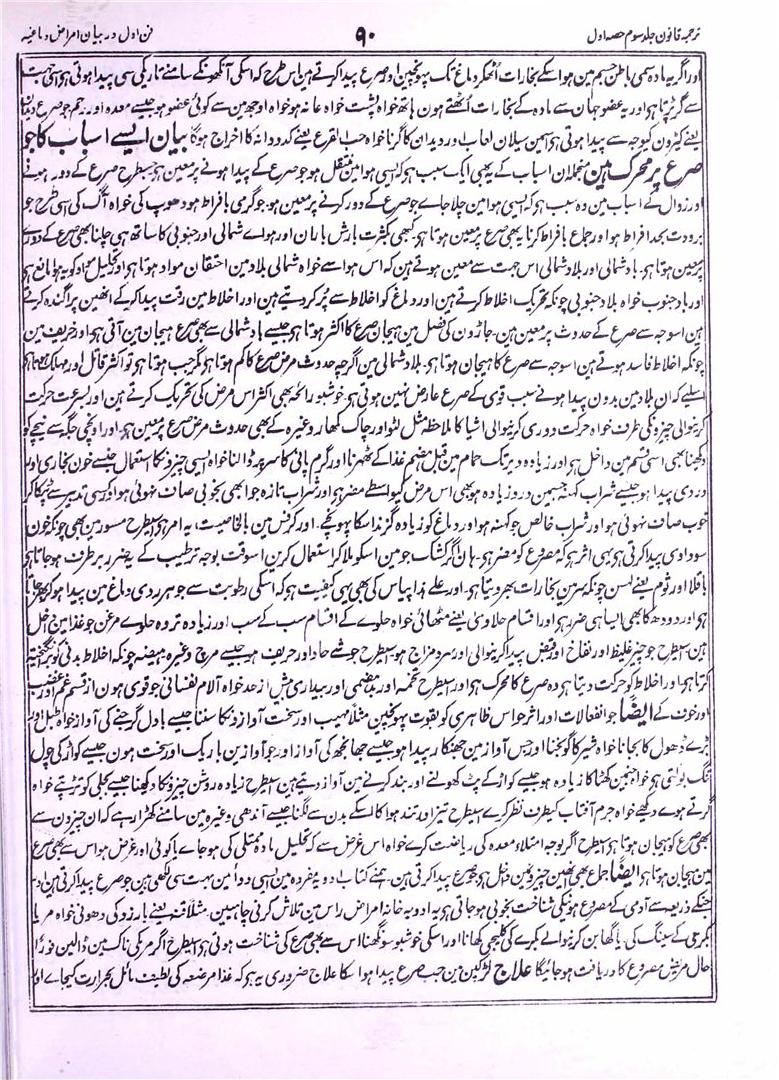 ترجمہ قانون جلد سوم حصہ اول ۹۰ فن اول در بیان امراض دماغیہ
اور اگر یہ مادہ سمی باطن جسم مین ہو اسکے بخارات اُٹھکر دماغ تک پہونچین اور صرع پیدا کرتے ہین اس طرح کہ اسکی آنکھونکے سامنے تاریکی سی پیدا ہوتی ہو اسی جہت
سے گر پڑتا ہو اور یہ عضو جہان سے مادہ کے بخارات اُٹھتے ہون ہاتھ خواہ پشت خواہ عانہ ہو خواہ اوجھ مین سے کوئی عضو ہو جیسے معدہ اور رحم جو صرع دیدان
یعنے کیڑون کیوجہ سے پیدا ہوتی ہو اسمین سیلان لعاب اور دیدان کا گرنا خواہ حب القرع یعنے کدو دانہ کا اخراج ہوگا بیان ایسے اسباب کا جو
صرع پر محرک ہین منجملہ ان اسباب کے یہ بھی ایک سبب ہو کہ ایسی ہوا مین منتقل ہو جو صرع کے پیدا ہونے پر معین ہو جسطرح صرع کے دورہ ہونے
اور زوال کے اسباب مین وہ سبب ہو کہ ایسی ہوا مین چلا جاے جو صرع کے دور کرنے پر معین ہو۔ جو گرمی بافراط ہو دھوپ کی خواہ آگ کی اسی طرح جو
برودت بحد افراط ہو اور جماع بافراط کرنا یہ بھی صرع پر معین ہوتا ہو۔ کبھی بکثرت بارش باران اور ہواے شمالی اور جنوبی کا ساتھ ہی چلنا بھی صرع کے دورے
پر معین ہوتا ہو۔ باد شمالی اور بلاد شمالی اس جہت سے معین ہوتے ہین کہ اس ہوا سے خواہ شمالی بلاد مین احتقان مواد ہوتا ہو اور تحلیل مواد کو یہ ہوا مانع ہو
اور باد جنوب خواہ بلاد جنوبی چونکہ تحریک اخلاط کرتے ہین اور دماغ کو اخلاط سے پُر کر دیتے ہین اور اخلاط مین رقت پیدا کر کے انھین پراگندہ کرتے
ہین اسوجہ سے صرع کے حدوث پر معین ہین۔ جاڑون کی فصل مین ہیجان صرع کا اکثر ہوتا ہو جیسے باد شمالی سے بھی صرع ہیجان مین آتی ہو اور خریف مین
چونکہ اخلاط فاسد ہوتے ہین اسوجہ سے صرع کا ہیجان ہوتا ہو۔ بلاد شمالی مین اگرچہ حدوث مرض صرع کا کم ہوتا ہو مگر جب ہوتا ہو تو اکثر قاتل اور مہلک ہوتا ہو
اسلیے کہ ان بلاد مین بدون پیدا ہونے سبب قوی کے صرع عارض نہین ہوتی ہو۔ خوشبو رائحہ بھی اکثر اس مرض کی تحریک کرتے ہین اور بسرعت حرکت
کرنیوالی چیزونکی طرف خواہ حرکت دوری کرنیوالی اشیا کا ملاحظہ مثل لٹو اور چاک کمھار وغیرہ کے بھی حدوث مرض صرع پر معین ہو اور اونچی جگہ سے نیچے کو
دیکھنا بھی اسی قسم مین داخل ہو اور زیادہ دیر تک حمام مین قبل ہضم غذا کے ٹھہرنا اور گرم پانی کا سر پر ڈالنا خواہ ایسی چیزونکا استعمال جنسے خون بخاری اور
دردی پیدا ہو جیسے شراب کہنہ جسمین درد زیادہ ہو بھی اس مرض کیواسطے مضر ہو اور شراب تازہ جو ابھی بخوبی صاف نہوئی ہو اور کسی تدبیر سے ٹپکا کر
خوب صاف نہوئی ہو اور شراب خالص جو کہنہ ہو اور دماغ کو زیادہ گزند اسکا پہونچے۔ اور کرفس مین بالخاصیت یہ امر ہو اسیطرح مسور مین بھی چونکہ خون
سوداوی پیدا کرتی ہو یہی اثر ہو کہ مصروع کو مضر ہو۔ ہان اگر کشک جو مین اسکو ملا کر استعمال کرین اسوقت بوجہ ترطیب کے یہ ضرر برطرف ہو جاتا ہو
باقلا اور ثوم یعنے لہسن چونکہ سر مین بخارات بھر دیتا ہو۔ اور علے ہذا پیاس کی بھی یہی کیفیت ہو کہ اسکی رطوبت سے جوہر ردی دماغ مین پیدا ہو کر پھر جاتا
ہو اور دودھ کا بھی ایسا ہی ضرر ہو اور اقسام حلاوی یعنے مٹھائی خواہ حلوے کے اقسام سب کے سب اور زیادہ تر وہ حلوے مرغن جو غذا مین داخل
ہین اسیطرح جو چیز غلیظ اور نفاخ اور قبض پیدا کرنیوالی اور سرد مزاج ہو اسیطرح جو شے حاد اور حریف ہو جیسے مرچ وغیرہ مبیضہ چونکہ اخلاط بدنی کو برانگیختہ
کرتا ہو اور اخلاط کو حرکت دیتا ہو وہ صرع کا محرک ہو اور اسیطرح تخمہ اور بدہضمی اور بیداری بیش از حد خواہ آلام نفسانی جو قوی ہون از قسم غم اور غضب
اور خوف کے ایضًا جو انفعالات اور اثر حواس ظاہری کو بقوت پہونچین مثلًا مہیب اور سخت آوازونکا سننا جیسے بادل گرجنے کی آواز خواہ طبل اور
بڑے ڈھول کا بجانا خواہ شیر کا گونجنا اور جس آواز مین جھنکار پیدا ہو جیسے جھانجھ کی آواز اور جو آوازین باریک اور سخت ہون جیسے کواڑ کی چول
تنگ بولتی ہو خواہ جنمین کھٹکا زیادہ ہو جیسے کواڑ کے پٹ کھولنے اور بند کرنے مین آواز دیتے ہین اسیطرح زیادہ روشن چیزونکا دیکھنا جیسے بجلی کو تڑپتے خواہ
گرتے ہوے دیکھے خواہ جرم آفتاب کیطرف نظر کرے اسیطرح تیز اور تند ہوا کا اسکے بدن سے لگنا جیسے آندھی وغیرہ مین سامنے کھڑا رہے کہ ان چیزون سے
بھی صرع کو ہیجان ہوتا ہو اسیطرح اگر بوجہ امتلاء معدہ کی ریاضت کرے خواہ اس غرض سے کہ تحلیل مادہ ممتلی کی ہو جاے یا کوئی اور غرض ہو اس سے بھی صرع
مین ہیجان ہوتا ہو ایضًا جماع بھی انھین چیزونمین داخل ہو جو صرع پیدا کرتی ہین۔ ہمنے کتاب ادویہ مفردہ مین ایسی دوائین بہت سی لکھی ہین جو صرع پیدا کرتی ہین اور
جنکے ذریعہ سے آدمی کے مصروع ہونیکی شناخت بخوبی ہو جاتی ہو یہ ادویہ خانہ امراض راس مین تلاش کرنی چاہیین۔ مثلًا قنہ یعنے بارزد کی دھونی خواہ مر یا
بکری کے سینگ کی یا گھا بن کرنیوالے بکرے کی کلیجی کھانا اور اسکی خوشبو سونگھنا اس سے بھی صرع کی شناخت ہوتی ہو اسیطرح اگر مر کی ناک مین ڈالین فورًا
حال مریض مصروع کا دریافت ہو جائیگا علاج لڑکپن مین جب صرع پیدا ہو اسکا علاج ضروری یہ ہو کہ غذا مرضعہ کی لطیف مائل بحرارت کیجاے اور